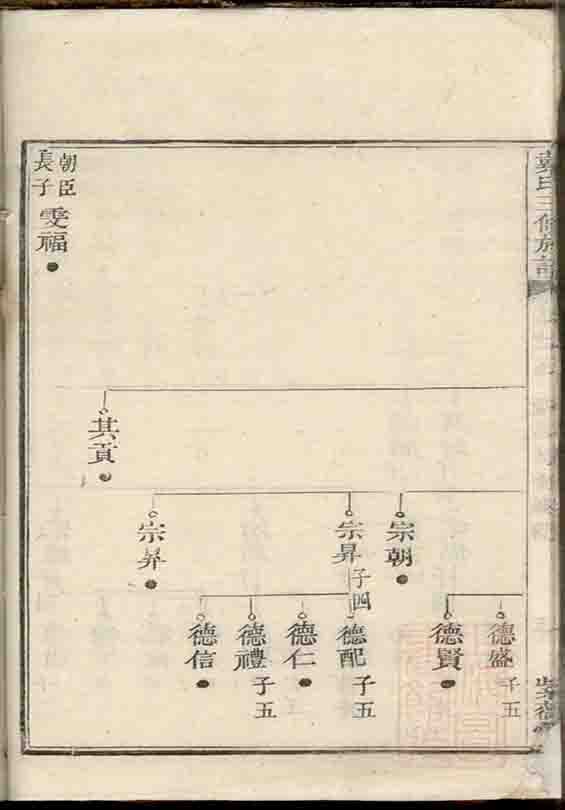 戴氏三修族譜
朝臣
長子
雯福
其貢
宗朝
宗昇
子四
宗昇
德盛
子五
德賢
德配
子五
德仁
德禮
子五
德信